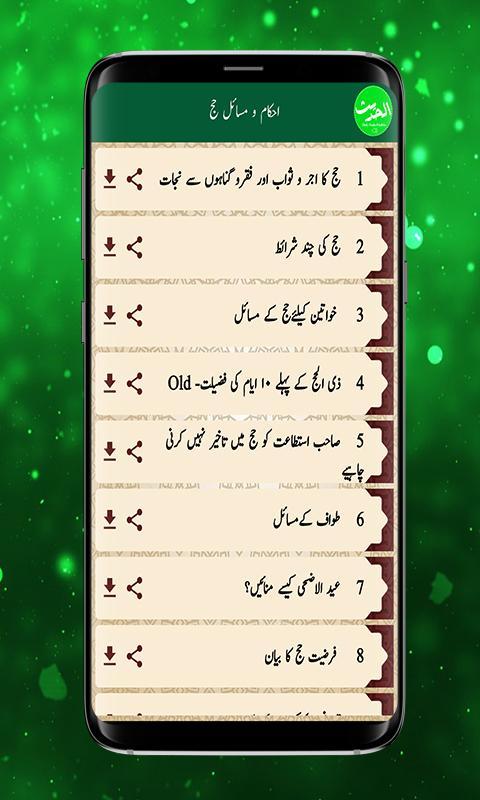 احکام و مسائل حج
الحدیث
1 حج کا اجر و ثواب اور فقر و گناہوں سے نجات
2 حج کی چند شرائط
3 خواتین کیلئے حج کے مسائل
4 ذی الحج کے پہلے ۱۰ ایام کی فضیلت- Old
5 صاحب استطاعت کو حج میں تاخیر نہیں کرنی
چاہیے
6 طواف کے مسائل
7 عید الاضحی کیسے منائیں؟
8 فرضیت حج کا بیان